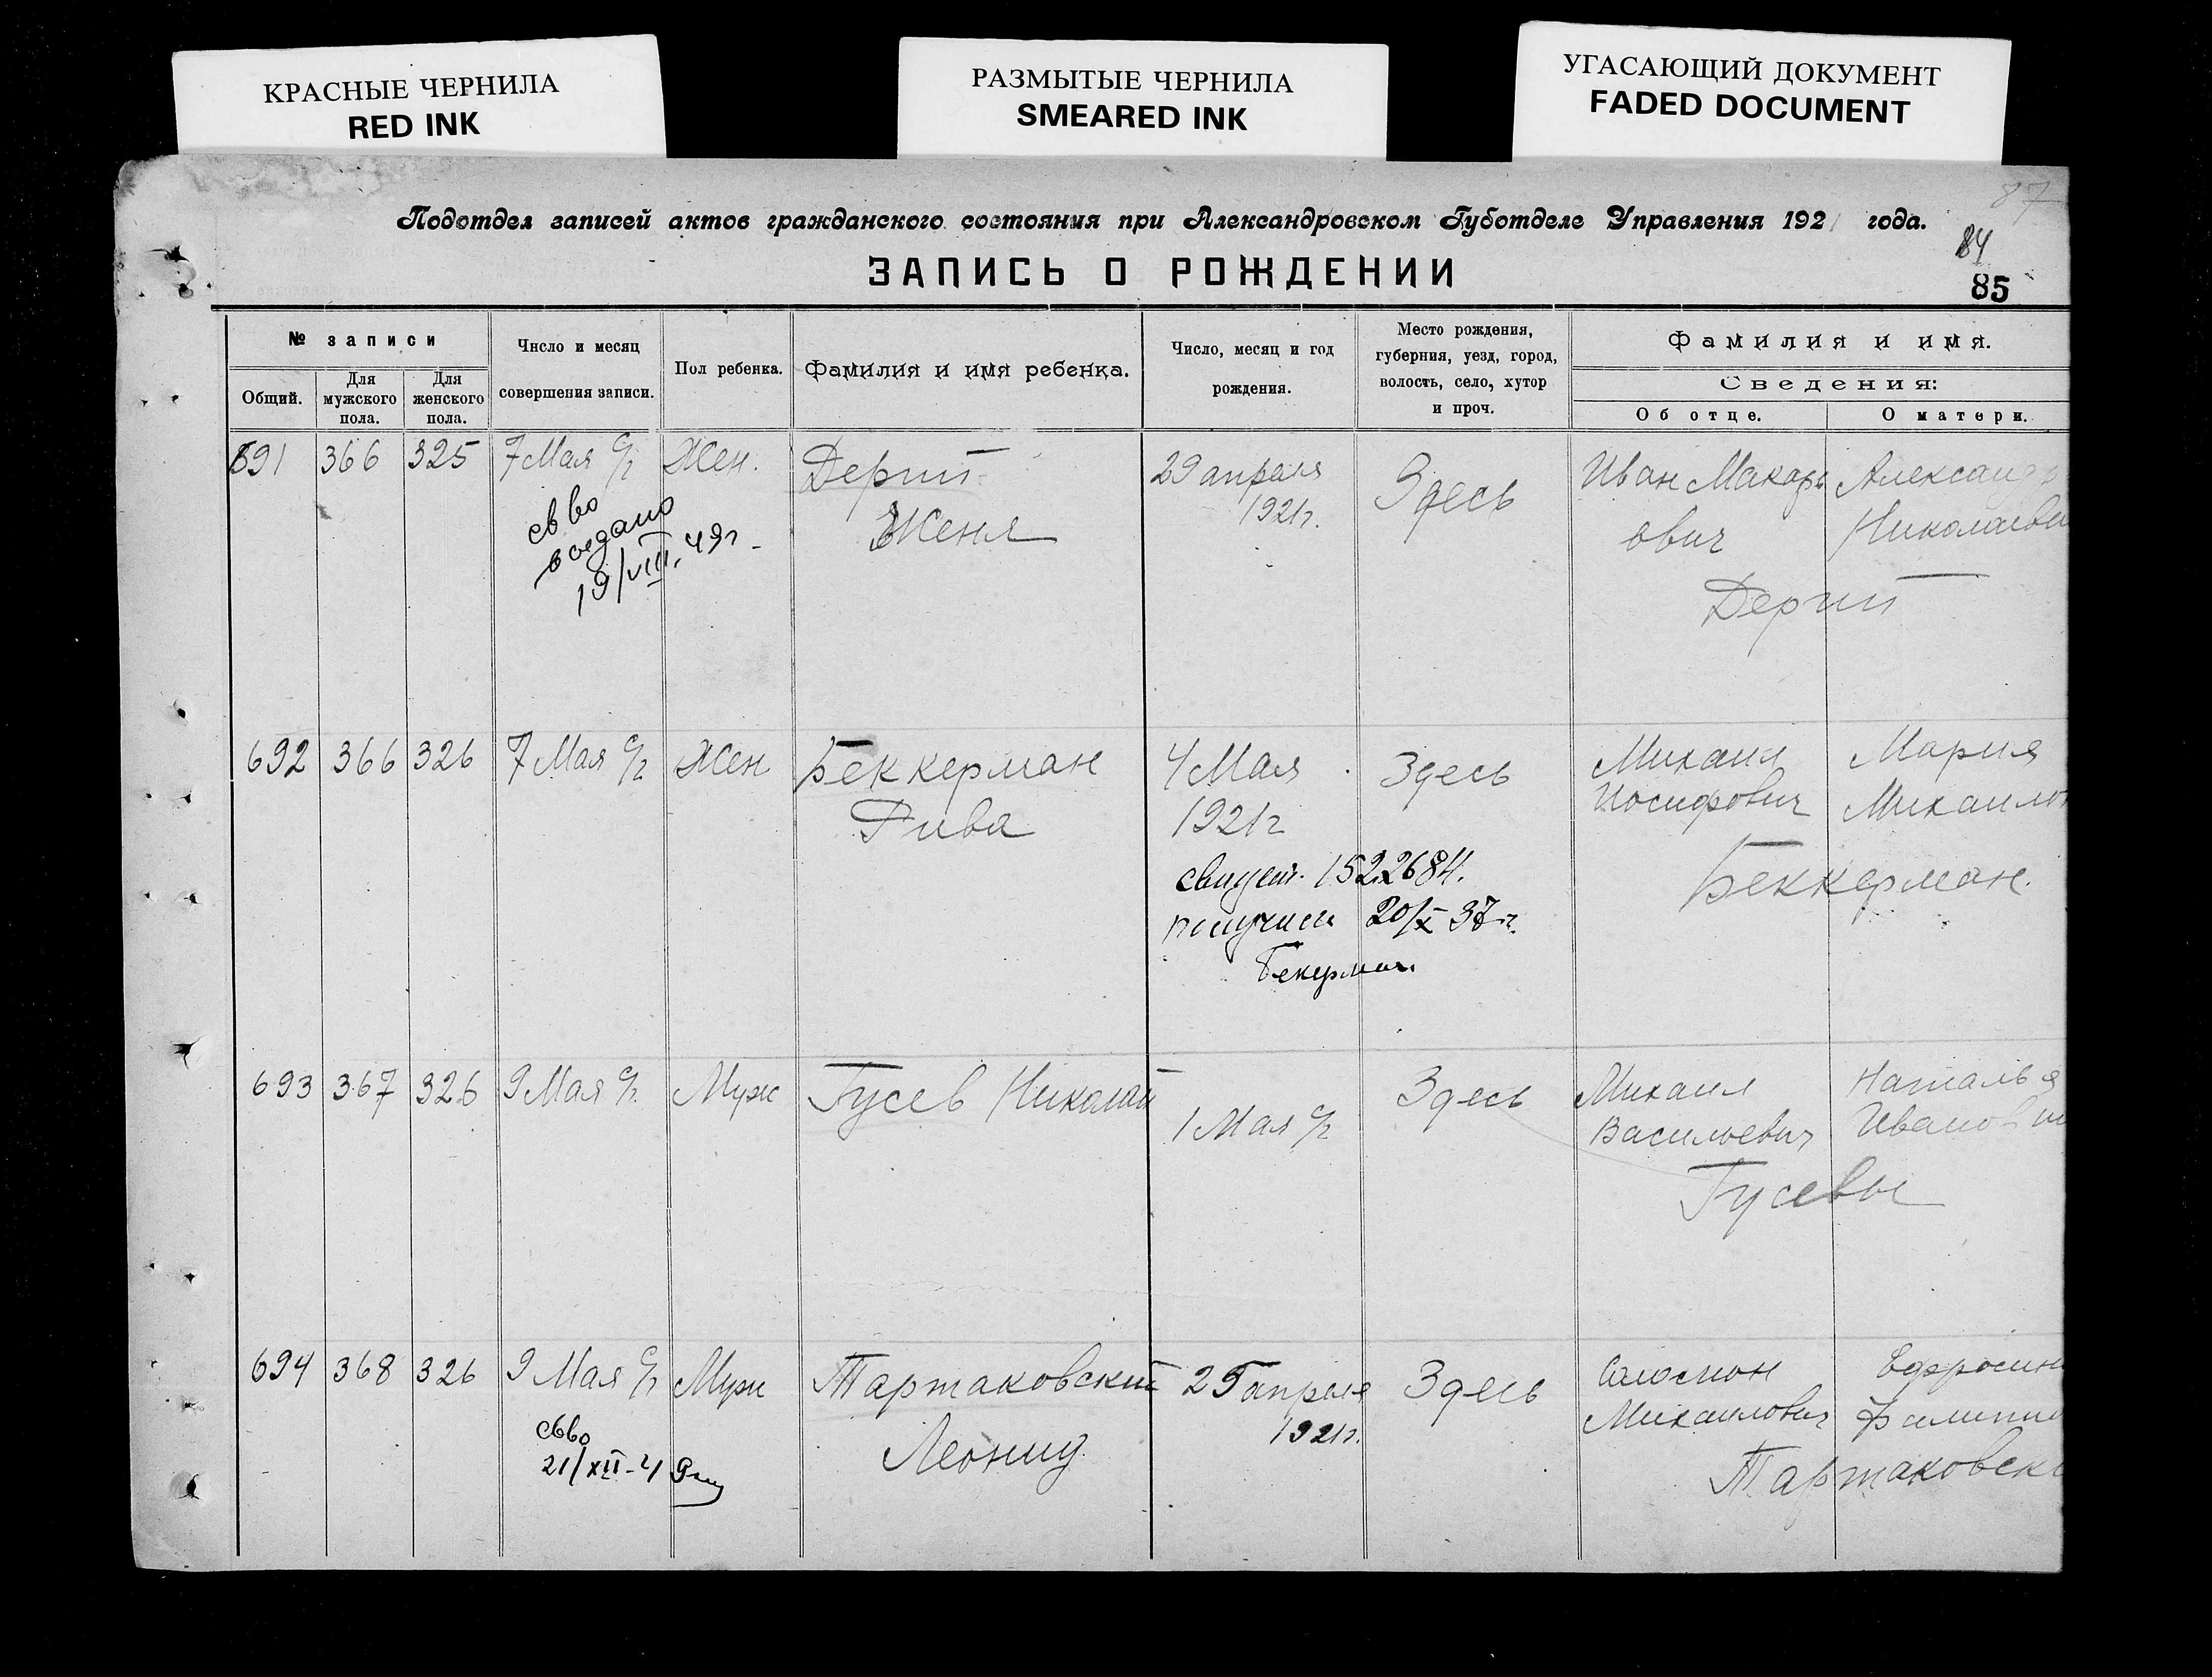 КРАСНЫЕ ЧЕРНИЛА
RED INK
РАЗМЫТЫЕ ЧЕРНИЛА
SMEARED INK
УГАСАЮЩИЙ ДОКУМЕНТ
FADED DOCUMENT
87
Подотдел записей актов гражданского состояния при Александровском Губотделе Управления 1921 года.
84
ЗАПИСЬ О РОЖДЕНИИ
85
№ записи
Общий.
Для мужского пола.
Для женского пола.
Число и месяц
совершения записи.
Пол ребенка.
Фамилия и имя ребенка.
Число, месяц и год
рождения.
Место рождения,
губерния, уезд, город,
волость, село, хутор
и проч.
Фамилия и имя.
Сведения:
Об отце.
О матери.
691 366 325 7 Мая с/г Жен. Дерий 29 апреля Здесь Иван Макарь Александр
Женя 1921г. евич Николаевн
св во
выдано
19/VIII-49г
Дерий
692 366 326 7 Мая с/г Жен Беккерман 4 Мая Здесь Михаил Мария
Рива 1921г Иосифович Михайло
свидет. 1522684.
получила 20/X 37г.
Бекерман.
Беккерман.
693 367 326 9 Мая с/г. Муж Гусев Николай 1 Мая с/г Здесь Михаил Наталья
Васильевич Ивановн
Гусевы
694 368 326 9 Мая с/г Муж Тартаковский 25 апреля Здесь Соломон Ефросин
Леонид 1921г. Михайлович Филипп
св во
21/XII-49г
Тартаковск